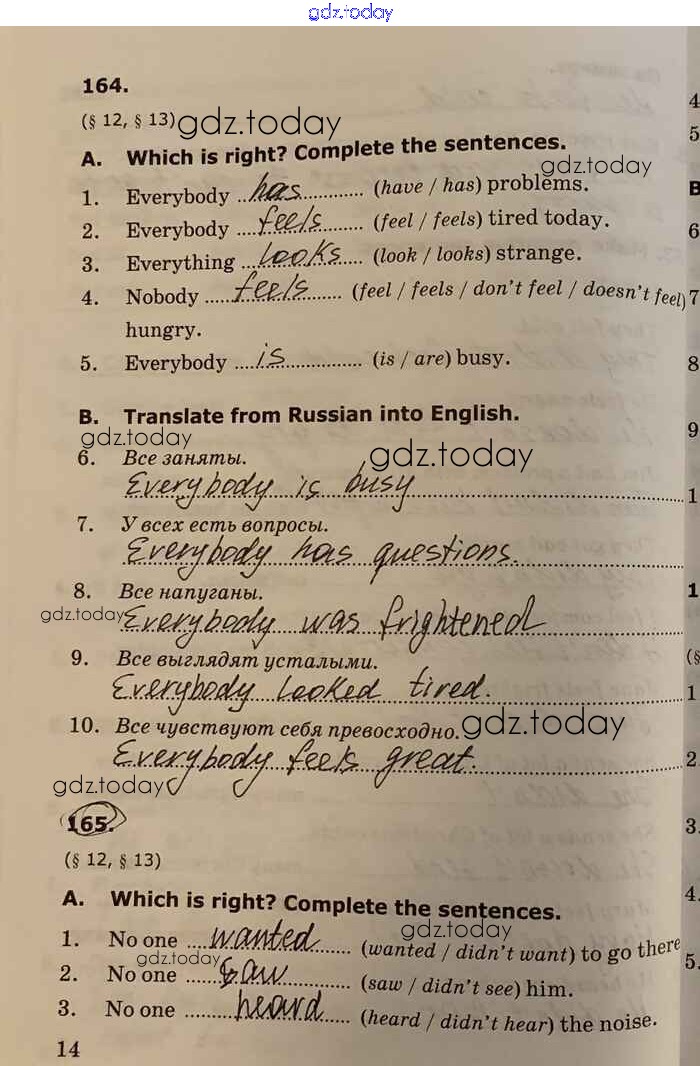 gdz.today
164.
(§ 12, § 13) gdz.today
A. Which is right? Complete the sentences.
gdz.today
1. Everybody ..has............. (have / has) problems.
2. Everybody ...feels.......... (feel / feels) tired today.
3. Everything ...looks.... (look / looks) strange.
4. Nobody .....feels...... (feel / feels / don't feel / doesn't feel)
hungry.
5. Everybody ....is.................. (is / are) busy.
B. Translate from Russian into English.
gdz.today
6. Все заняты. gdz.today
Everybody is busy
7. У всех есть вопросы.
Everybody has questions.
8. Все напуганы.
gdz.today
Everybody was frightened
9. Все выглядят усталыми.
Everybody looked tired.
10. Все чувствуют себя превосходно. gdz.today
Everybody feels great.
gdz.today
165.
(§ 12, § 13)
A. Which is right? Complete the sentences.
gdz.today
1. No one ....wanted...... (wanted / didn't want) to go there
gdz.today
2. No one ......saw............ (saw / didn't see) him.
3. No one .........heard.... (heard / didn't hear) the noise.
14
4
5
B
6
7
8
9
1
1
(§
1
2.
3.
4.
5.